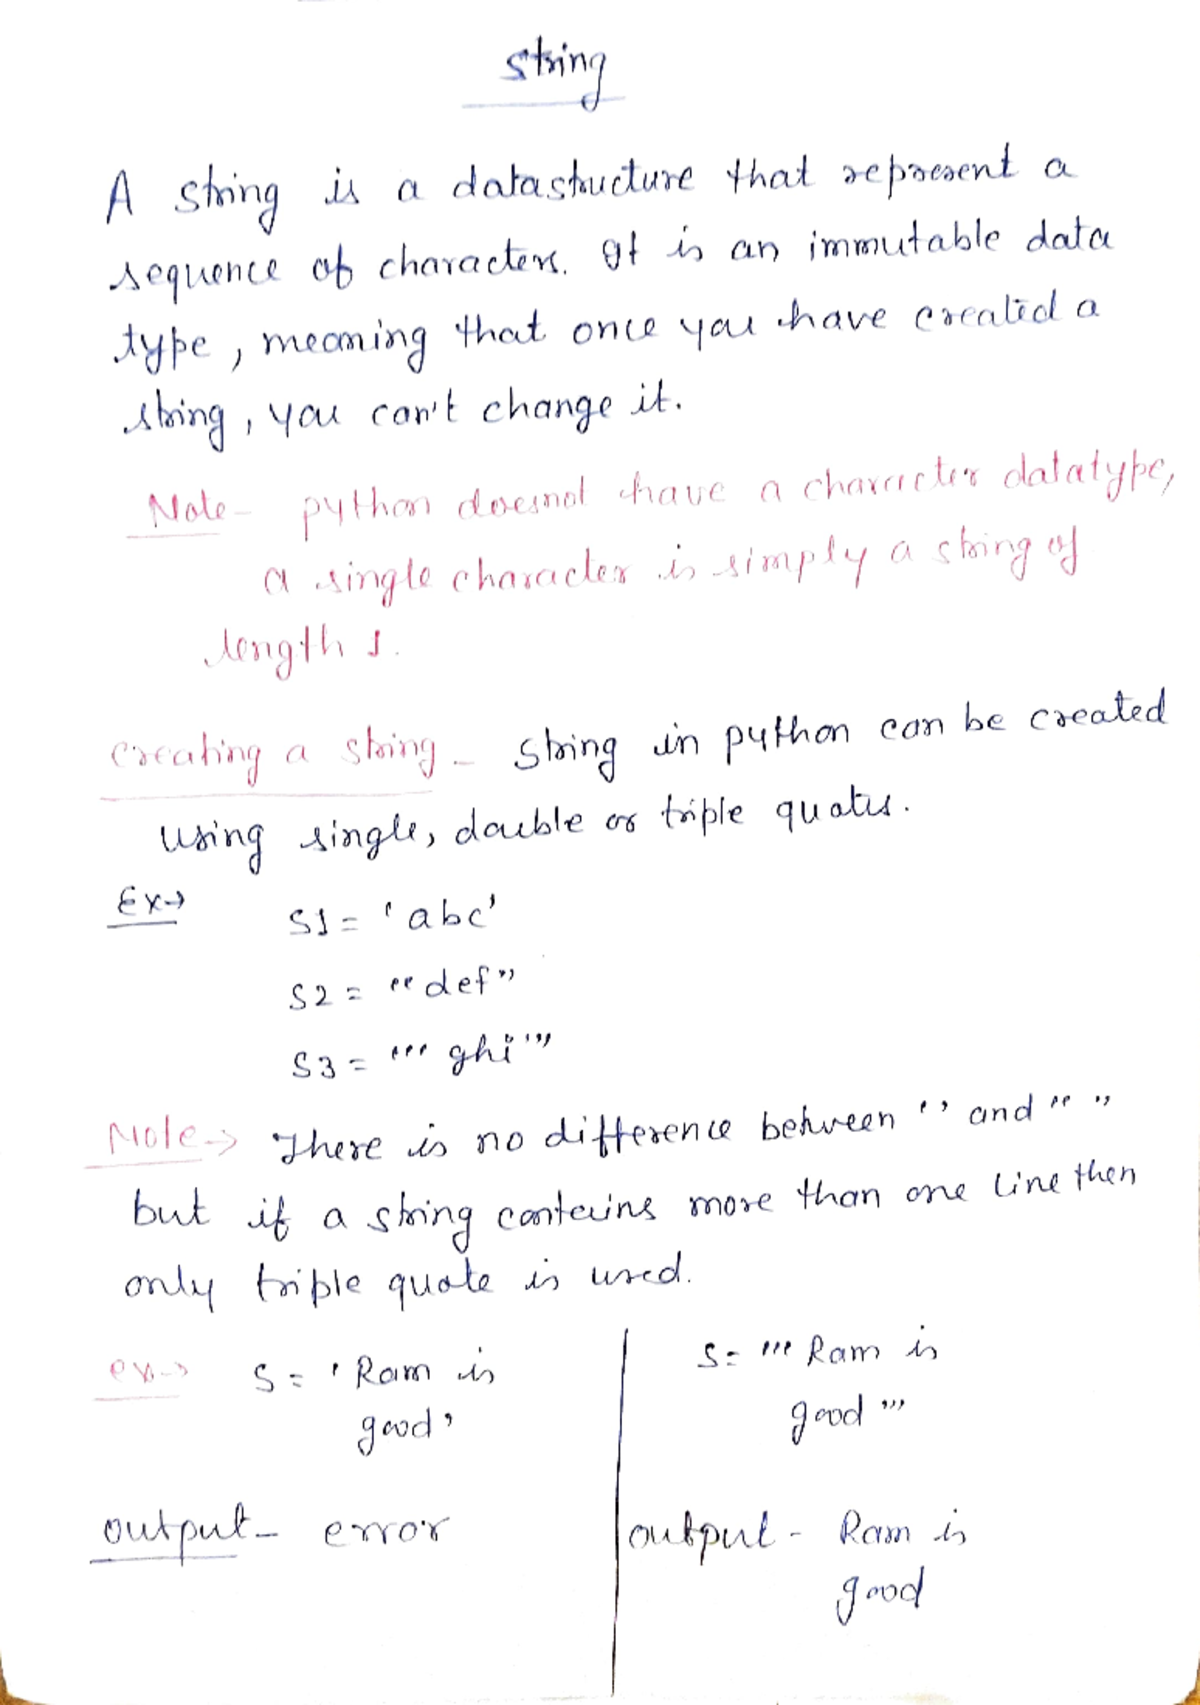 string
A string is a datastructure that represent a
sequence of characters. It is an immutable data
type, meaning that once you have created a
string, you can't change it.
Note- python doesnot have a character datatype,
a single character is simply a string of
length 1.
creating a string - String in python can be created
using single, double or triple quotes.
Ex→
S1 = 'abc'
S2 = "def"
S3 = ''' ghi '''
Note→ There is no difference between ' ' and " "
but if a string contains more than one line then
only triple quote is used.
ex→ S = 'Ram is
good'
output- error
S= ''' Ram is
good '''
output - Ram is
good